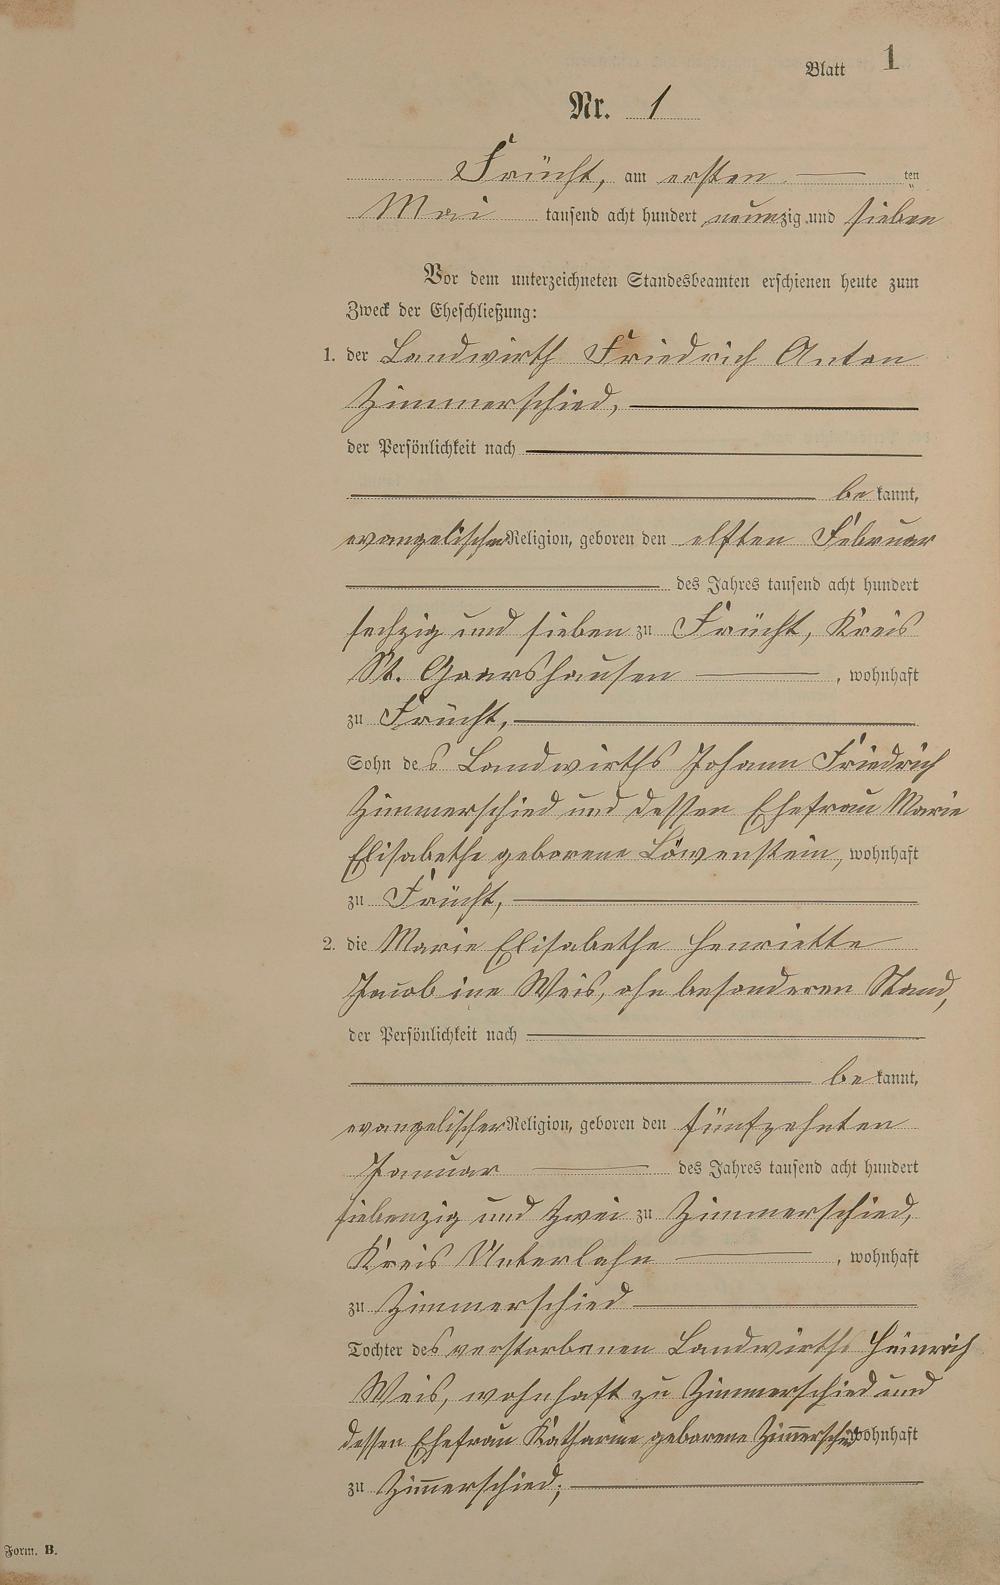 Blatt 1
Nr. 1
Frücht, am ersten ten
Mai tausend acht hundert neunzig und sieben
Vor dem unterzeichneten Standesbeamten erschienen heute zum
Zweck der Eheschließung:
1. der Landwirth Friedrich Anton
Zimmerschied,
der Persönlichkeit nach
bekannt,
evangelischer Religion, geboren den elften Februar
des Jahres tausend acht hundert
sechzig und sieben zu Frücht, Kreis
St. Goarshausen, wohnhaft
zu Frücht,
Sohn des Landwirths Johann Friedrich
Zimmerschied und dessen Ehefrau Marie
Elisabethe geborene Löwenstein, wohnhaft
zu Frücht,
2. die Marie Elisabethe Henriette
Jacobine Weis, ohne besonderen Stand,
der Persönlichkeit nach
bekannt,
evangelischer Religion, geboren den fünfzehnten
Januar des Jahres tausend acht hundert
siebenzig und zwei zu Zimmerschied,
Kreis Unterlahn, wohnhaft
zu Zimmerschied
Tochter des verstorbenen Landwirths Heinrich
Weis, wohnhaft zu Zimmerschied und
dessen Ehefrau Katharine geborene Zimmerschied wohnhaft
zu Zimmerschied;
Form. B.